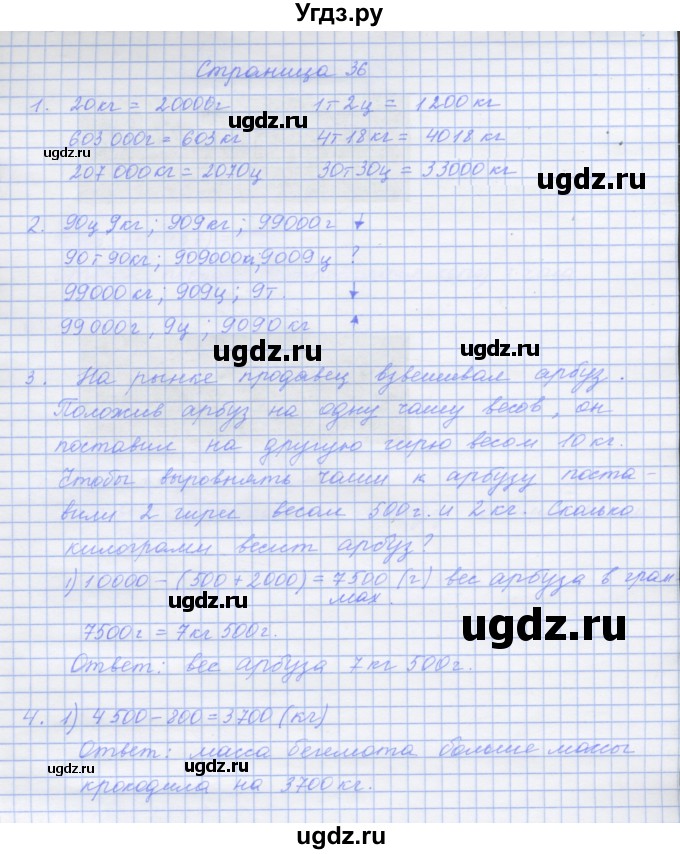 Угдз.ру
Страница 36
1. 20 кг = 20000 г 1т 2ц = 1200 кг
603 000 г = 603 кг 4т 18 кг = 4018 кг
207 000 кг = 2070 ц 30т 30ц = 33000 кг
2. 90ц 9кг; 909 кг; 99000 г ↓
90т 90кг; 909000к, 9009 ц ?
99000 кг; 909ц; 9т. ↓
99 000г, 9ц; 9090 кг ↑
3. На рынке продавец взвешивал арбуз.
Положив арбуз на одну чашу весов, он
поставил на другую гирю весом 10 кг.
Чтобы выровнять чаши к арбузу поста-
вили 2 гири весом 500 г. и 2 кг. Сколько
килограмм весит арбуз?
1) 10000 - (500 + 2000) = 7500 (г) вес арбуза в грам
мах.
7500 г = 7 кг 500 г.
Ответ: вес арбуза 7 кг 500 г.
4. 1) 4 500 - 800 = 3700 (кг)
Ответ: масса бегемота больше массы
крокодила на 3700 кг.
ugdz.ru
ugdz.ru
ugdz.ru
ugdz.ru
ugdz.ru
ugdz.ru
ugdz.ru
ugdz.ru
ugdz.ru
ugdz.ru